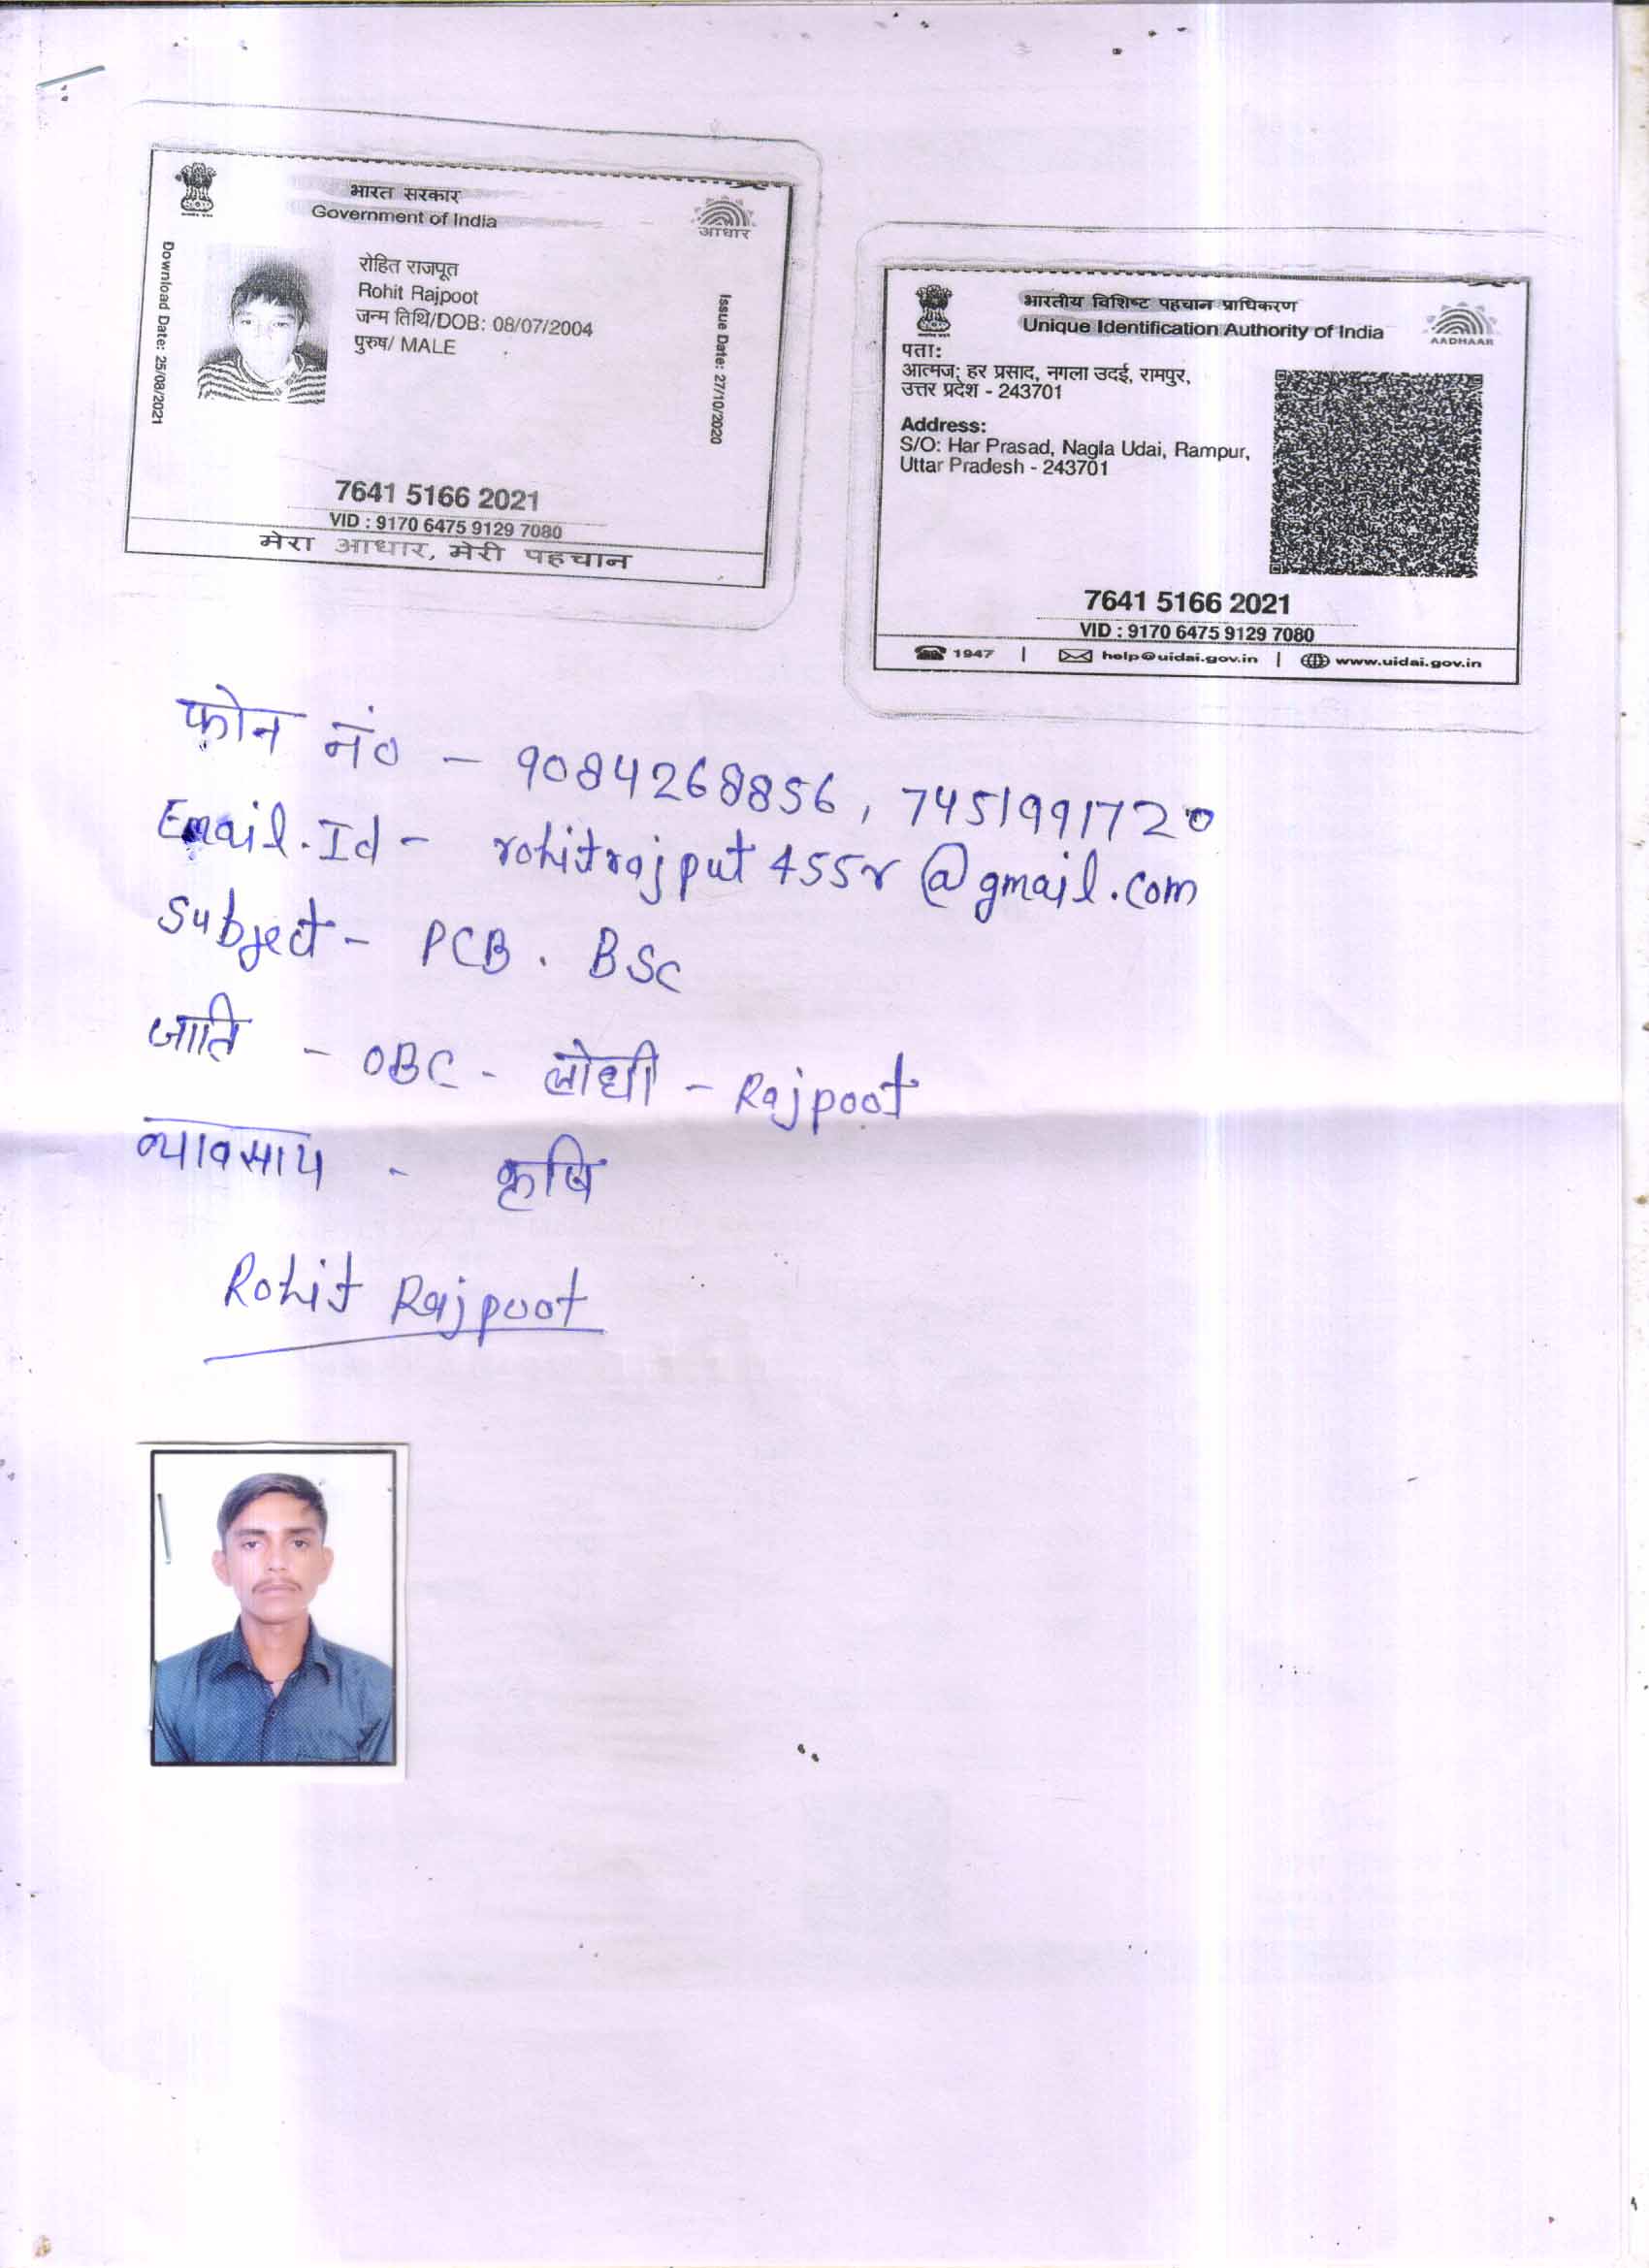 भारत सरकार
Government of India
आधार
Download Date: 25/08/2021
रोहित राजपूत
Rohit Rajpoot
जन्म तिथि/DOB: 08/07/2004
पुरुष/ MALE
Issue Date: 27/10/2020
7641 5166 2021
VID : 9170 6475 9129 7080
मेरा आधार, मेरी पहचान
भारतीय विशिष्ट पहचान प्राधिकरण
Unique Identification Authority of India
AADHAAR
पता:
आत्मज: हर प्रसाद, नगला उदई, रामपुर,
उत्तर प्रदेश - 243701
Address:
S/O: Har Prasad, Nagla Udai, Rampur,
Uttar Pradesh - 243701
7641 5166 2021
VID : 9170 6475 9129 7080
1947 | help@uidai.gov.in | www.uidai.gov.in
फोन नं० - 9084268856, 7451991720
Email.Id - rohitrajput455r@gmail.com
Subject - PCB. BSc
जाति - OBC - लोधी - Rajpoot
व्यावसाय - कृषि
Rohit Rajpoot